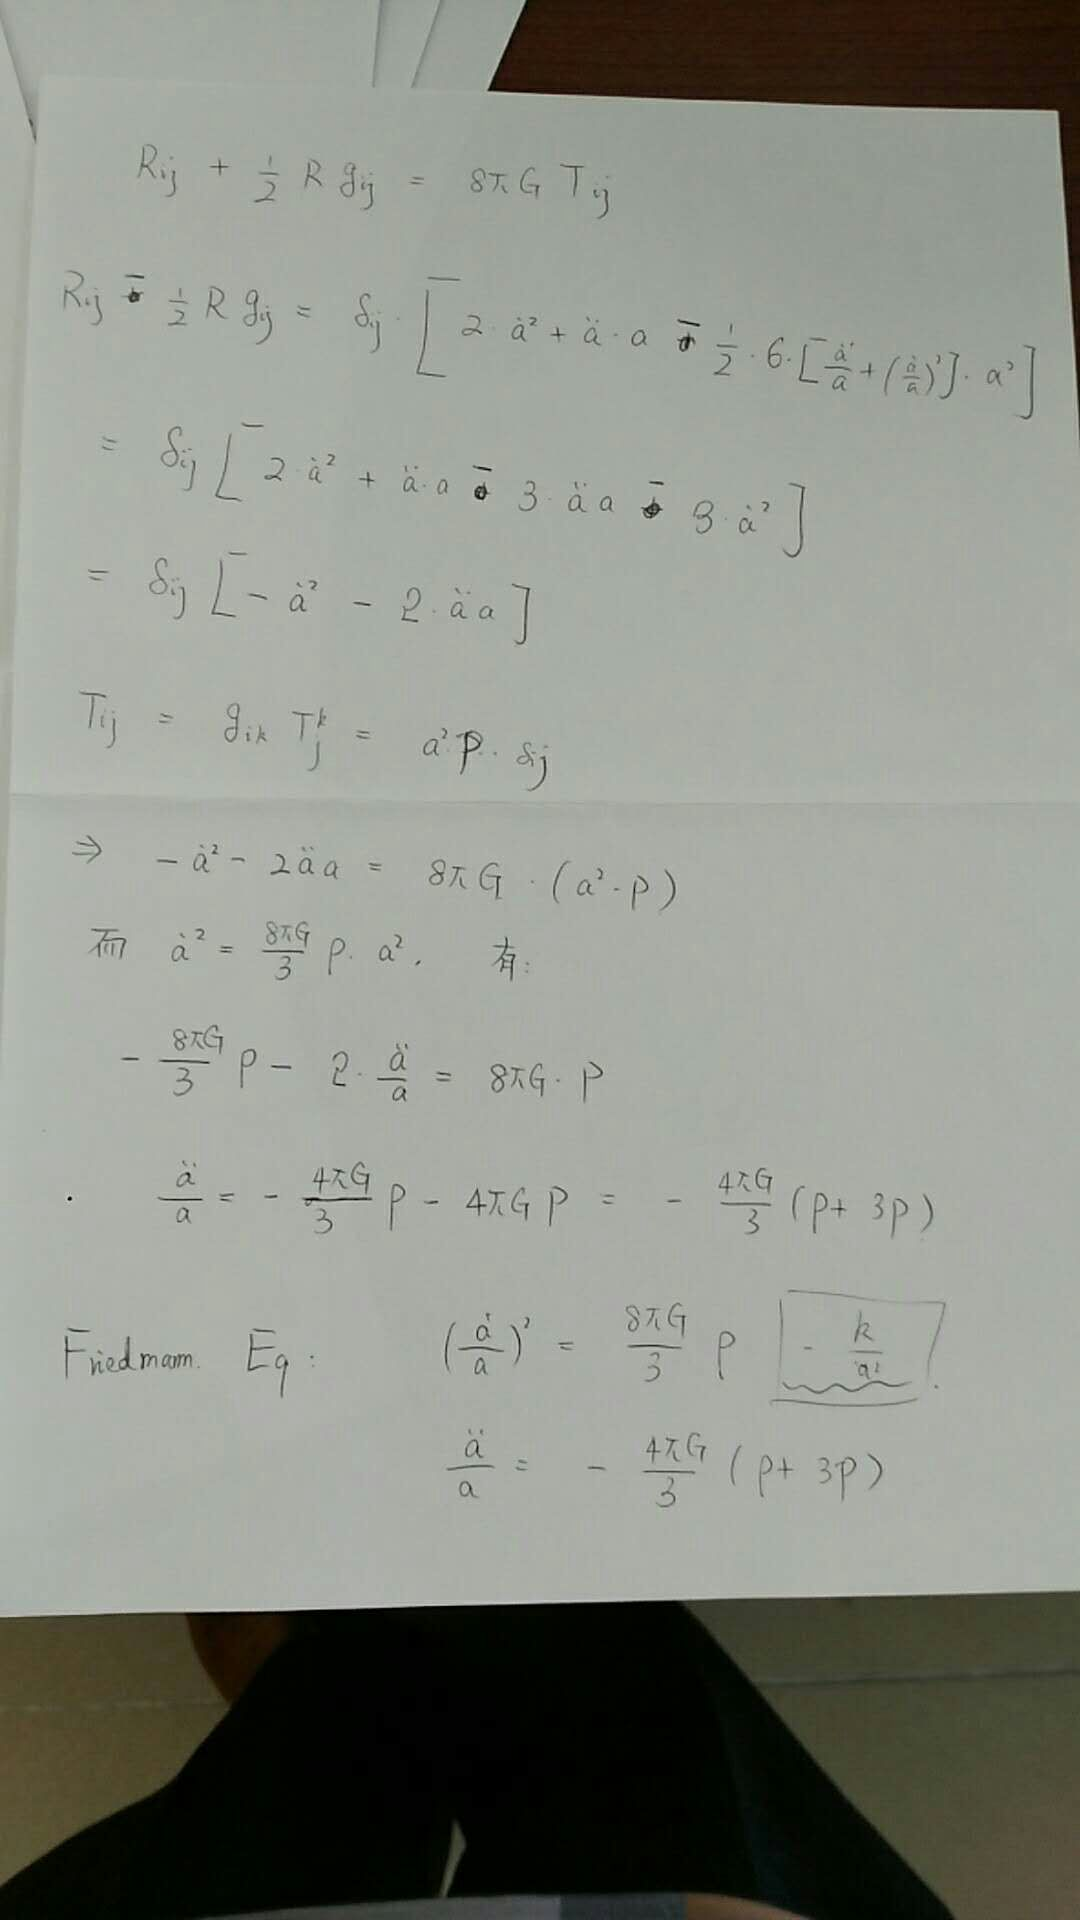 Rij + 1/2 R gij = 8πG Tij
Rij - 1/2 R gij = δij · [ 2·ȧ² + ä·a - 1/2 · 6·[ä/a + (ȧ/a)²]· a² ]
= δij [ 2·ȧ² + ä·a - 3·äa - 3·ȧ² ]
= δij [ - ȧ² - 2·äa ]
Tij = gik T^k_j = a² P · δij
⇒ -ȧ² - 2äa = 8πG · (a²·P)
而 ȧ² = 8πG/3 ρ· a². 有:
- 8πG/3 ρ - 2· ä/a = 8πG· P
· ä/a = - 4πG/3 ρ - 4πG P = - 4πG/3 (ρ + 3P)
Friedmann. Eq: (ȧ/a)² = 8πG/3 ρ - k/a² .
ä/a = - 4πG/3 (ρ + 3P)